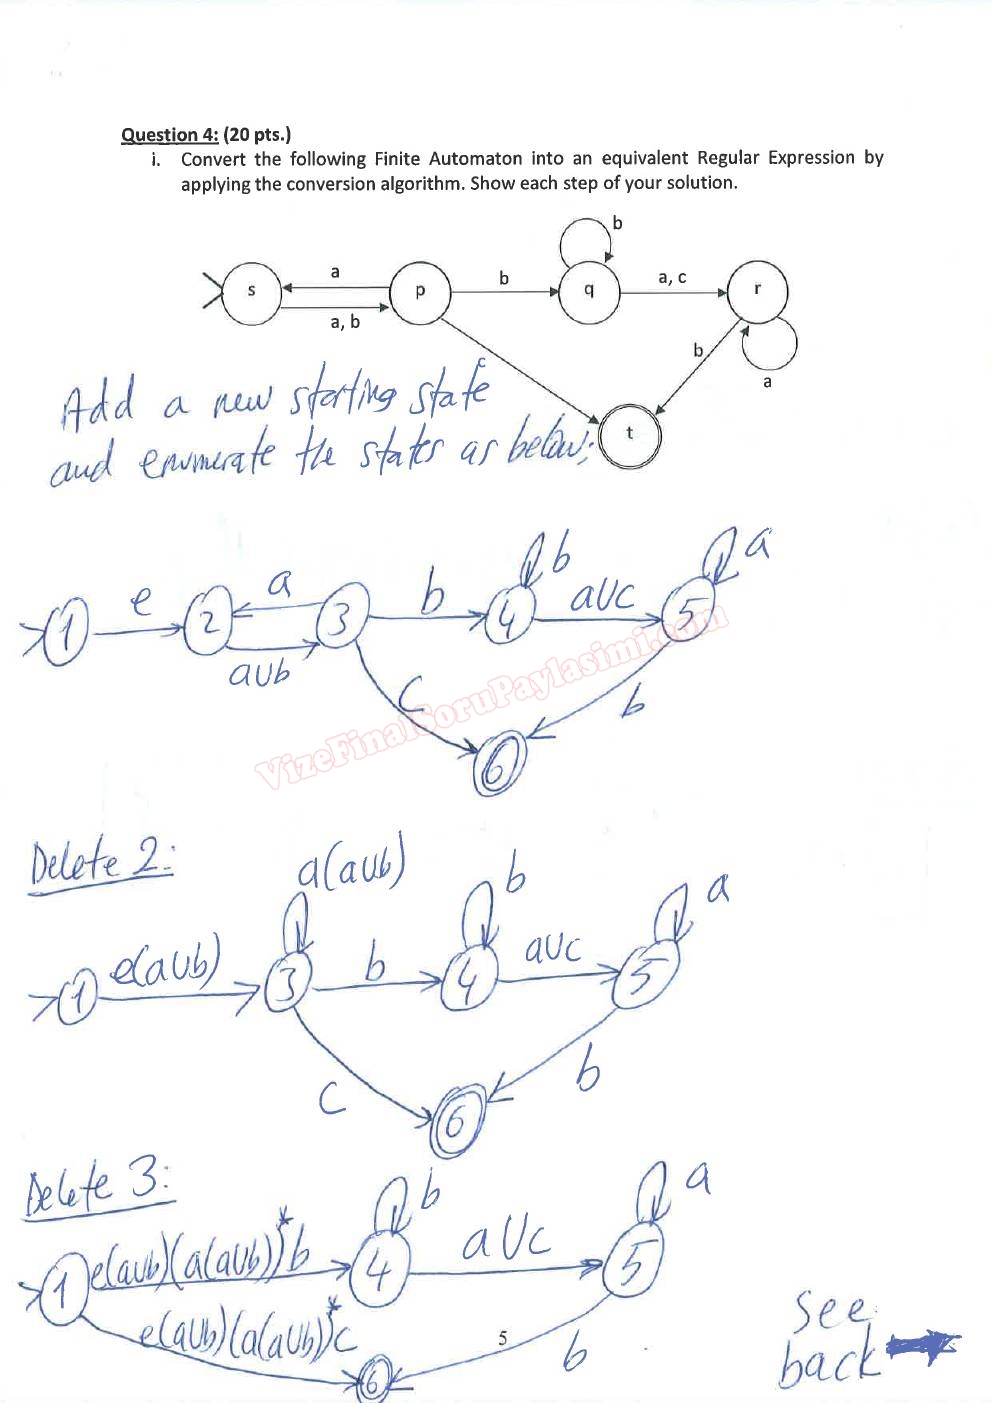 Question 4: (20 pts.)
i. Convert the following Finite Automaton into an equivalent Regular Expression by
applying the conversion algorithm. Show each step of your solution.
b
s
a
p
b
q
a, c
r
a, b
b
a
c
t
Add a new starting state
and enumerate the states as below;
b
a
1
e
2
a
3
b
4
aUc
5
aUb
c
b
6
VizeFinalSoruPaylasimi.com
Delete 2:
a(aUb)
b
a
1
e(aUb)
3
b
4
aUc
5
c
b
6
Delete 3:
b
a
1
e(aUb)(a(aUb))*b
4
aUc
5
e(aUb)(a(aUb))*c
6
b
5
see
back